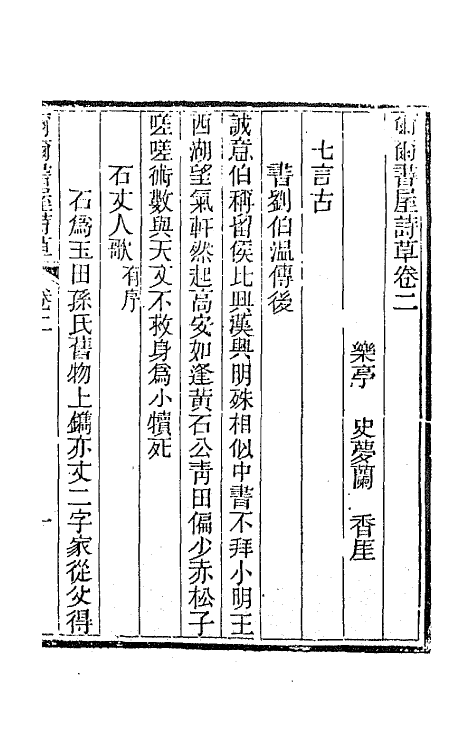 爾爾書屋詩草卷二
樂亭　史夢蘭　香厓
七言古
書劉伯溫傳後
誠意伯稱留侯比興漢興明殊相似中書不拜小明王
西湖望氣軒然起高安如逢黃石公靑田偏少赤松子
嗟嗟術數與天文不救身爲小犢死
石丈人歌有序
石爲玉田孫氏舊物上鐫亦丈二字家從父得
爾爾書屋詩草　卷二　一